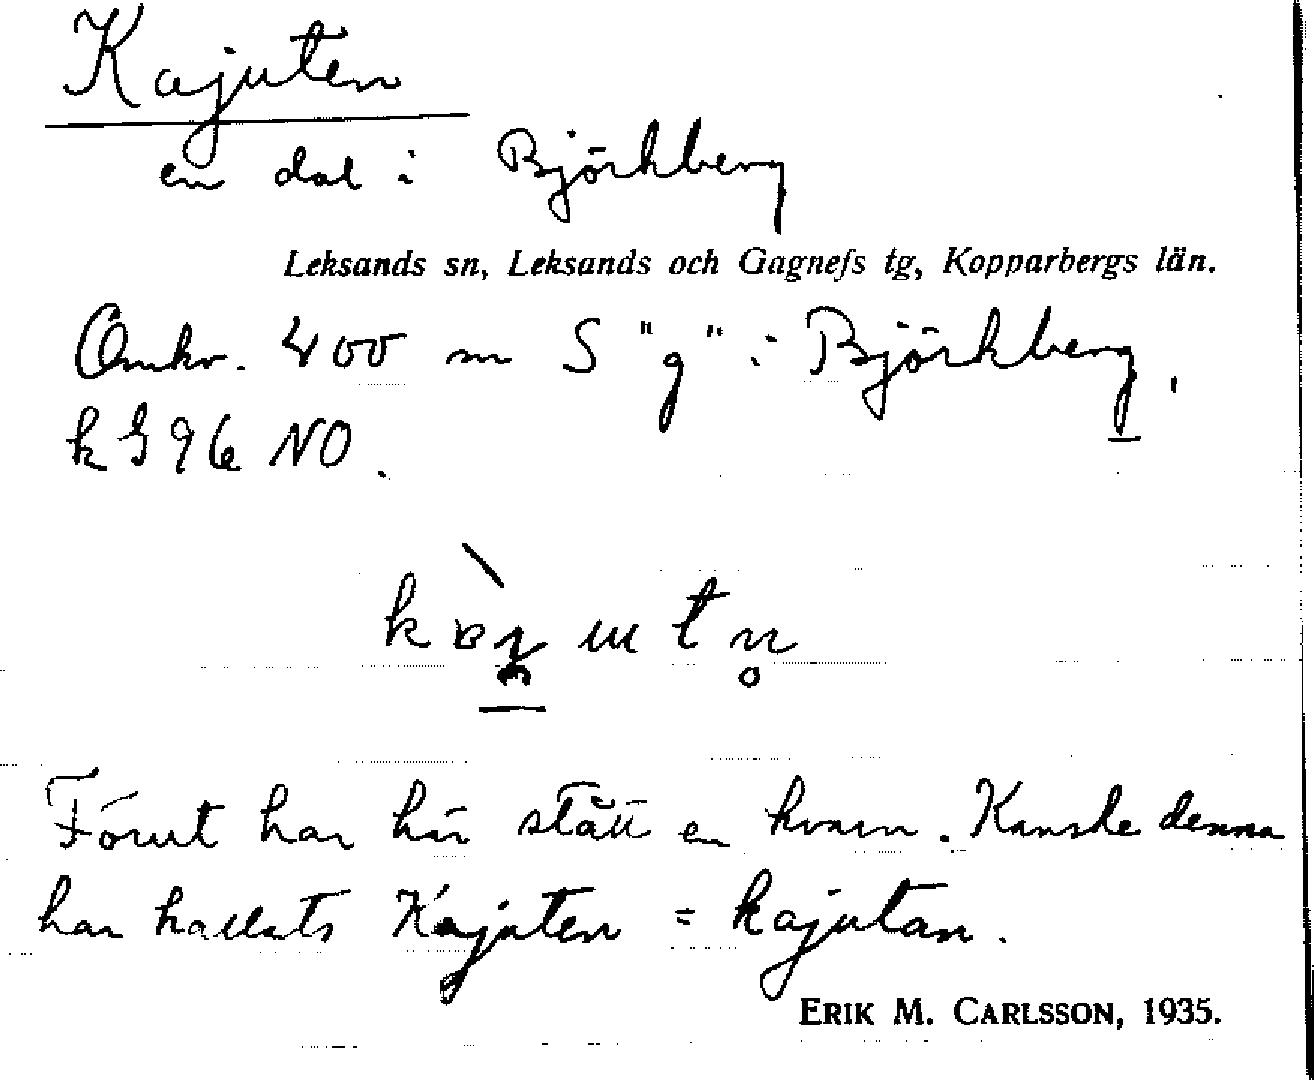 Kajuten
en dal i Björkberg
Leksands sn, Leksands och Gagnefs tg, Kopparbergs län.
Omkr. 400 m S "g" i Björkberg,
k G 96 NO.
Förut har här stått en kvarn. Kanske denna
har kallats Kajuten = kajutan.
ERIK M. CARLSSON, 1935.